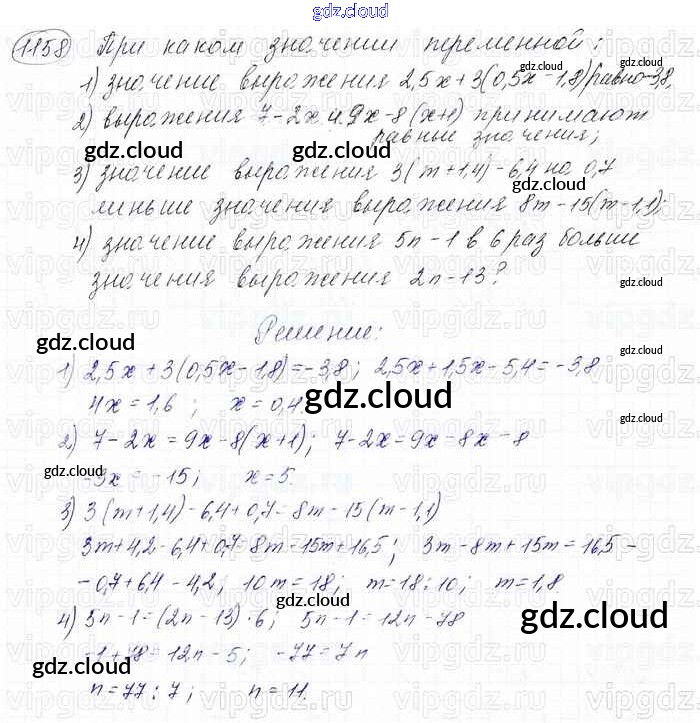 gdz.cloud
1158 При каком значении переменной:
1) значение выражения 2,5x+3(0,5x-1,8) равно -3,8,
2) выражения 7-2x и 9x-8(x+1) принимают
равные значения;
gdz.cloud gdz.cloud
3) значение выражения 3(m+1,4)-6,4 на 0,7
gdz.cloud
меньше значения выражения 8m-15(m-1,1);
4) значение выражения 5n-1 в 6 раз больше
значения выражения 2n-13?
gdz.cloud
Решение:
gdz.cloud gdz.cloud
1) 2,5x+3(0,5x-1,8)=-3,8; 2,5x+1,5x-5,4=-3,8
4x=1,6; x=0,4
gdz.cloud
2) 7-2x=9x-8(x+1); 7-2x=9x-8x-8
gdz.cloud gdz.cloud
-3x=-15; x=5.
3) 3(m+1,4)-6,4+0,7=8m-15(m-1,1)
3m+4,2-6,4+0,7=8m-15m+16,5; 3m-8m+15m=16,5-
-0,7+6,4-4,2; 10m=18; m=18:10; m=1,8
gdz.cloud
4) 5n-1=(2n-13)·6; 5n-1=12n-78
gdz.cloud
-1+78=12n-5; -77=7n
gdz.cloud
n=77:7; n=11.
gdz.cloud